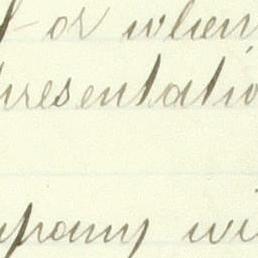 or when
presentatio
mpany wi